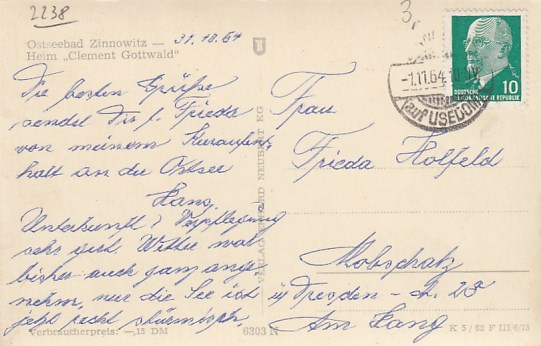 2238
3,
Ostseebad Zinnowitz — 31.10.64
Heim „Clement Gottwald"
Die besten Grüße
sendet Dir l. Frieda
von meinem Kuraufent-
halt an der Ostsee
Hans.
Unterkunft & Verpflegung
sehr gut. Wetter war
bisher auch ganz ange-
nehm, nur die See ist
jetzt recht stürmisch.
Verbraucherpreis: —,15 DM
6303 N
VERLAG NEUBERT KG
-1.11.64.10
(auf USEDOM)
DEUTSCHE
DEMOKRATISCHE REPUBLIK
10
Frau
Frieda Holfeld
Mobschatz
ü/ Dresden - A. 28
Am Hang
K 5/62 F III 6/73